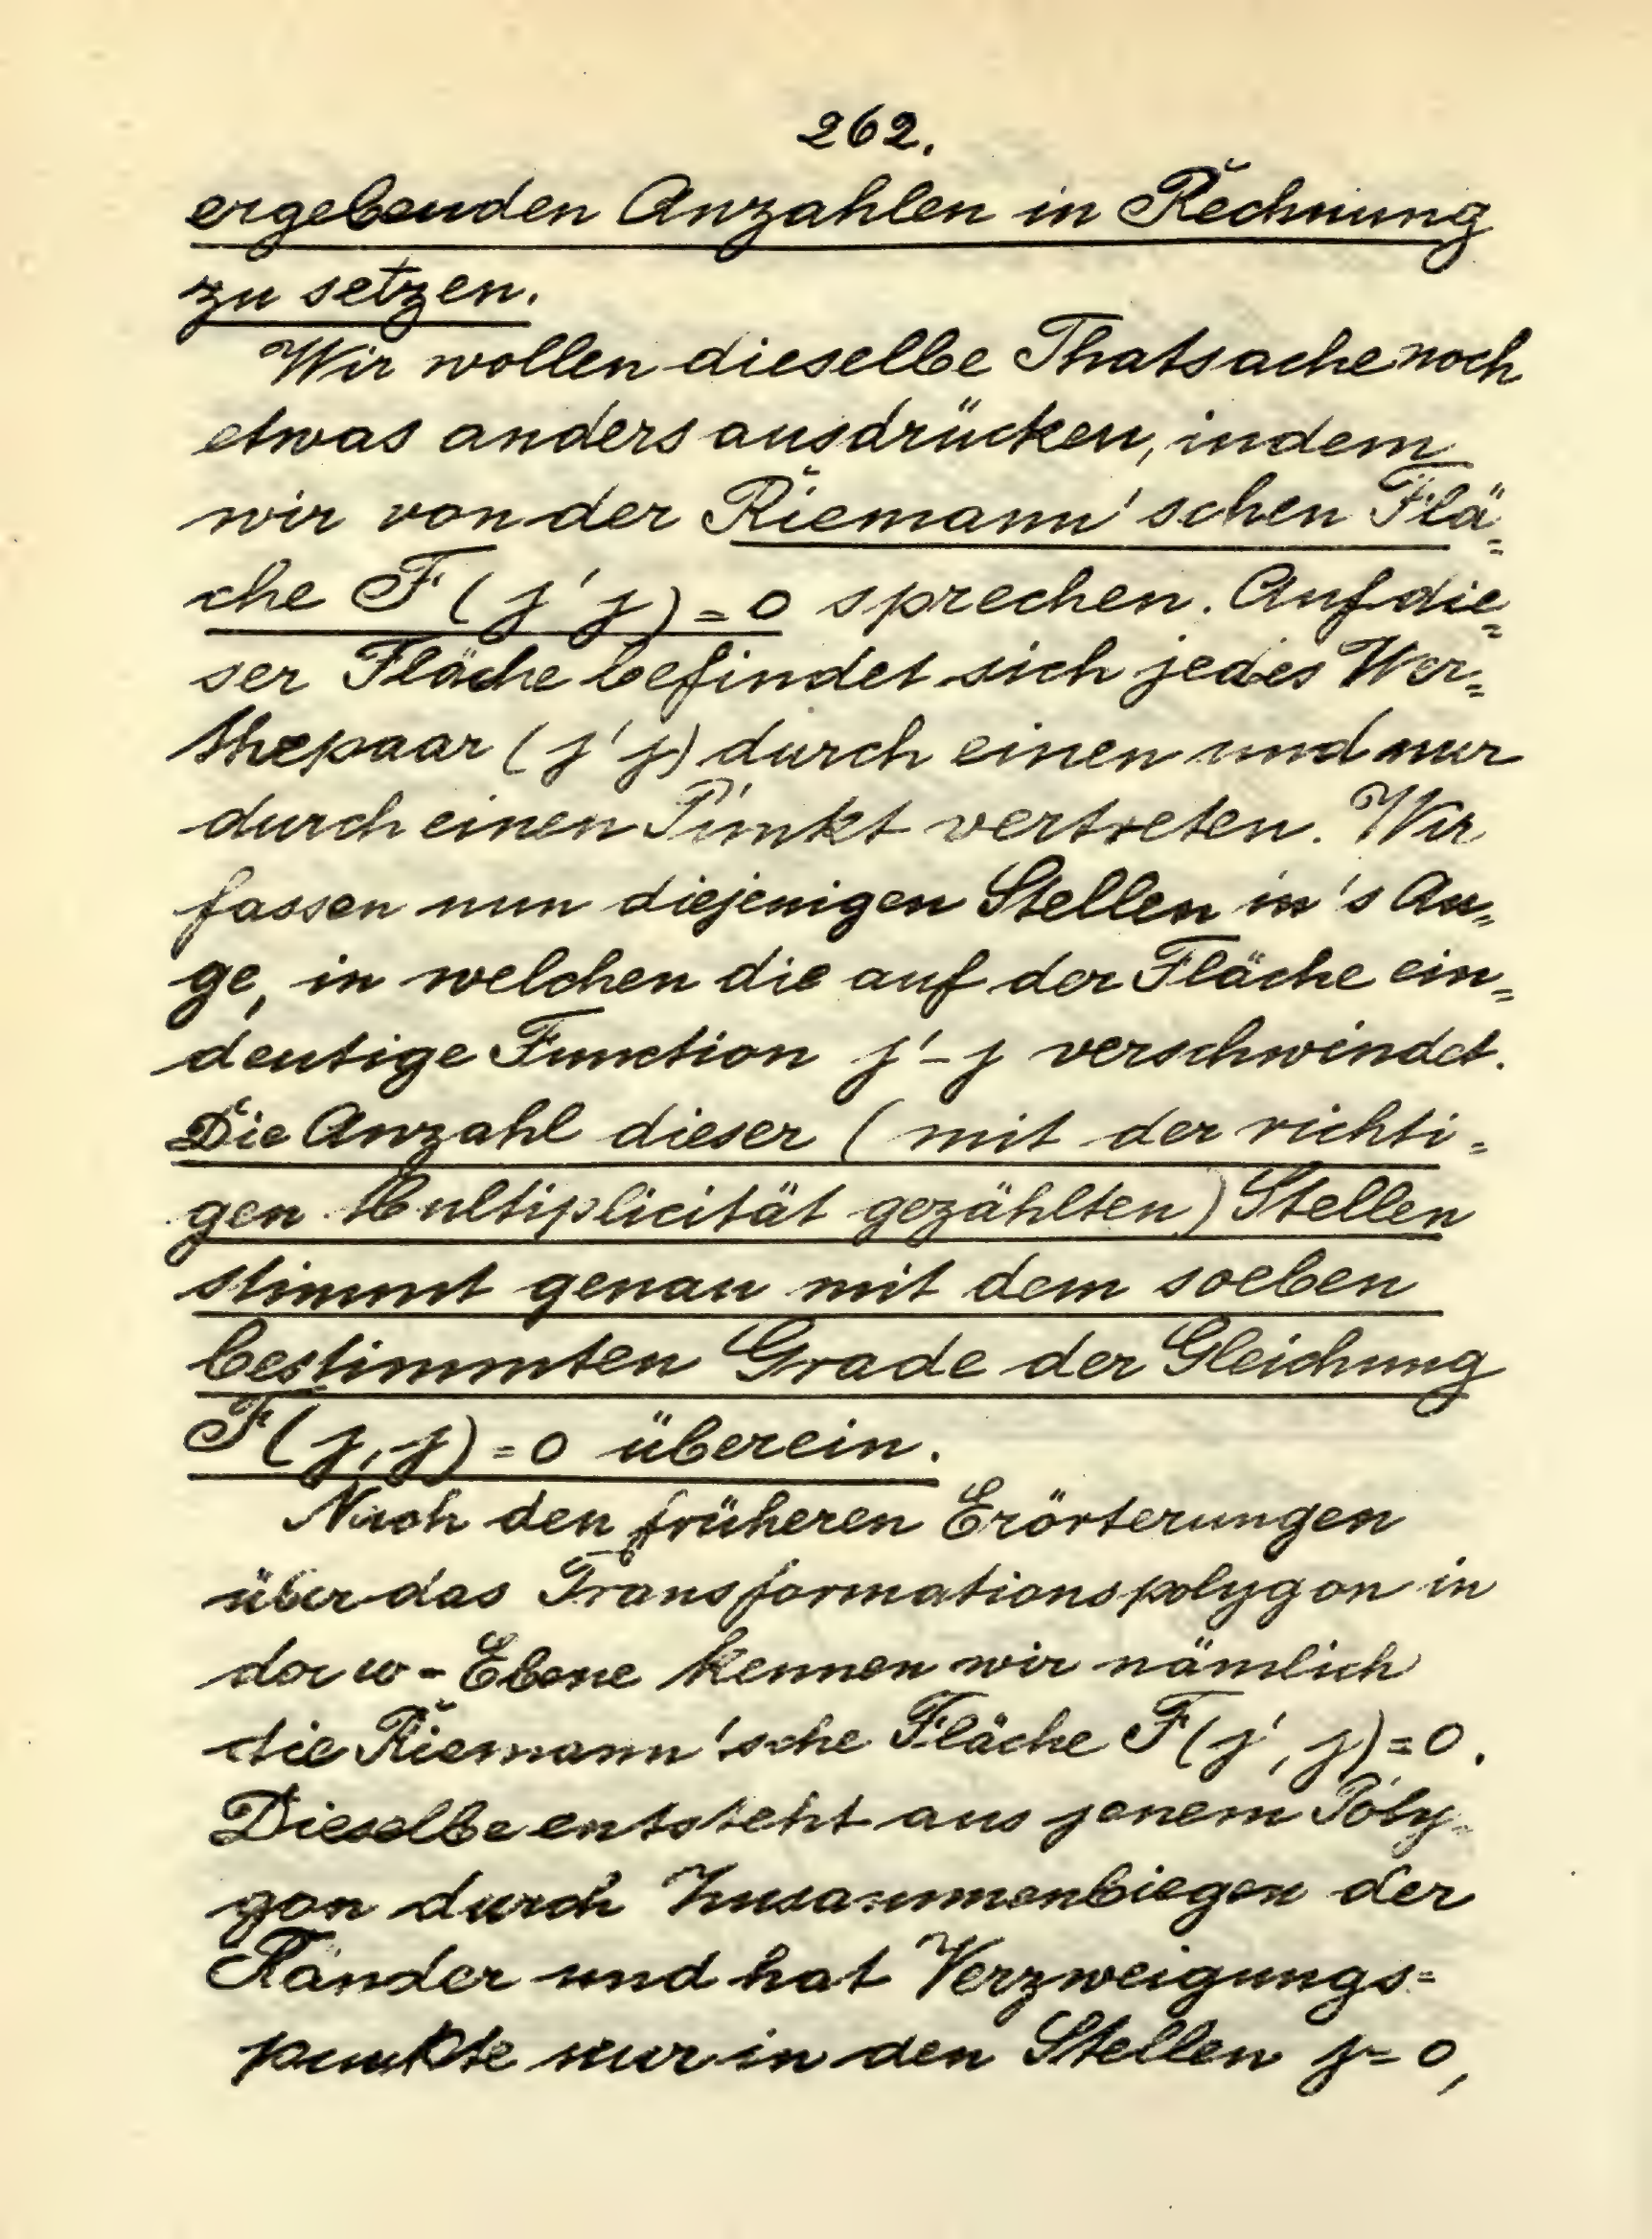 262.
ergebenden Anzahlen in Rechnung
zu setzen.
Wir wollen dieselbe Thatsache noch
etwas anders ausdrücken, indem
wir von der Riemann'schen Flä=
che F(j'j)=0 sprechen. Auf die=
ser Fläche befindet sich jedes Wer=
thepaar (j'j) durch einen und nur
durch einen Punkt vertreten. Wir
fassen nun diejenigen Stellen in's Au=
ge, in welchen die auf der Fläche ein=
deutige Function j'-j verschwindet.
Die Anzahl dieser (mit der richti=
gen Multiplicität gezählten) Stellen
stimmt genau mit dem soeben
bestimmten Grade der Gleichung
F(j,j)=0 überein.
Nach den früheren Erörterungen
über das Transformationspolygon in
der w-Ebene kennen wir nämlich
die Riemann'sche Fläche F(j', j)=0.
Dieselbe entsteht aus jenem Poly=
gon durch Zusammenbiegen der
Ränder und hat Verzweigungs=
punkte nur in den Stellen j=0,